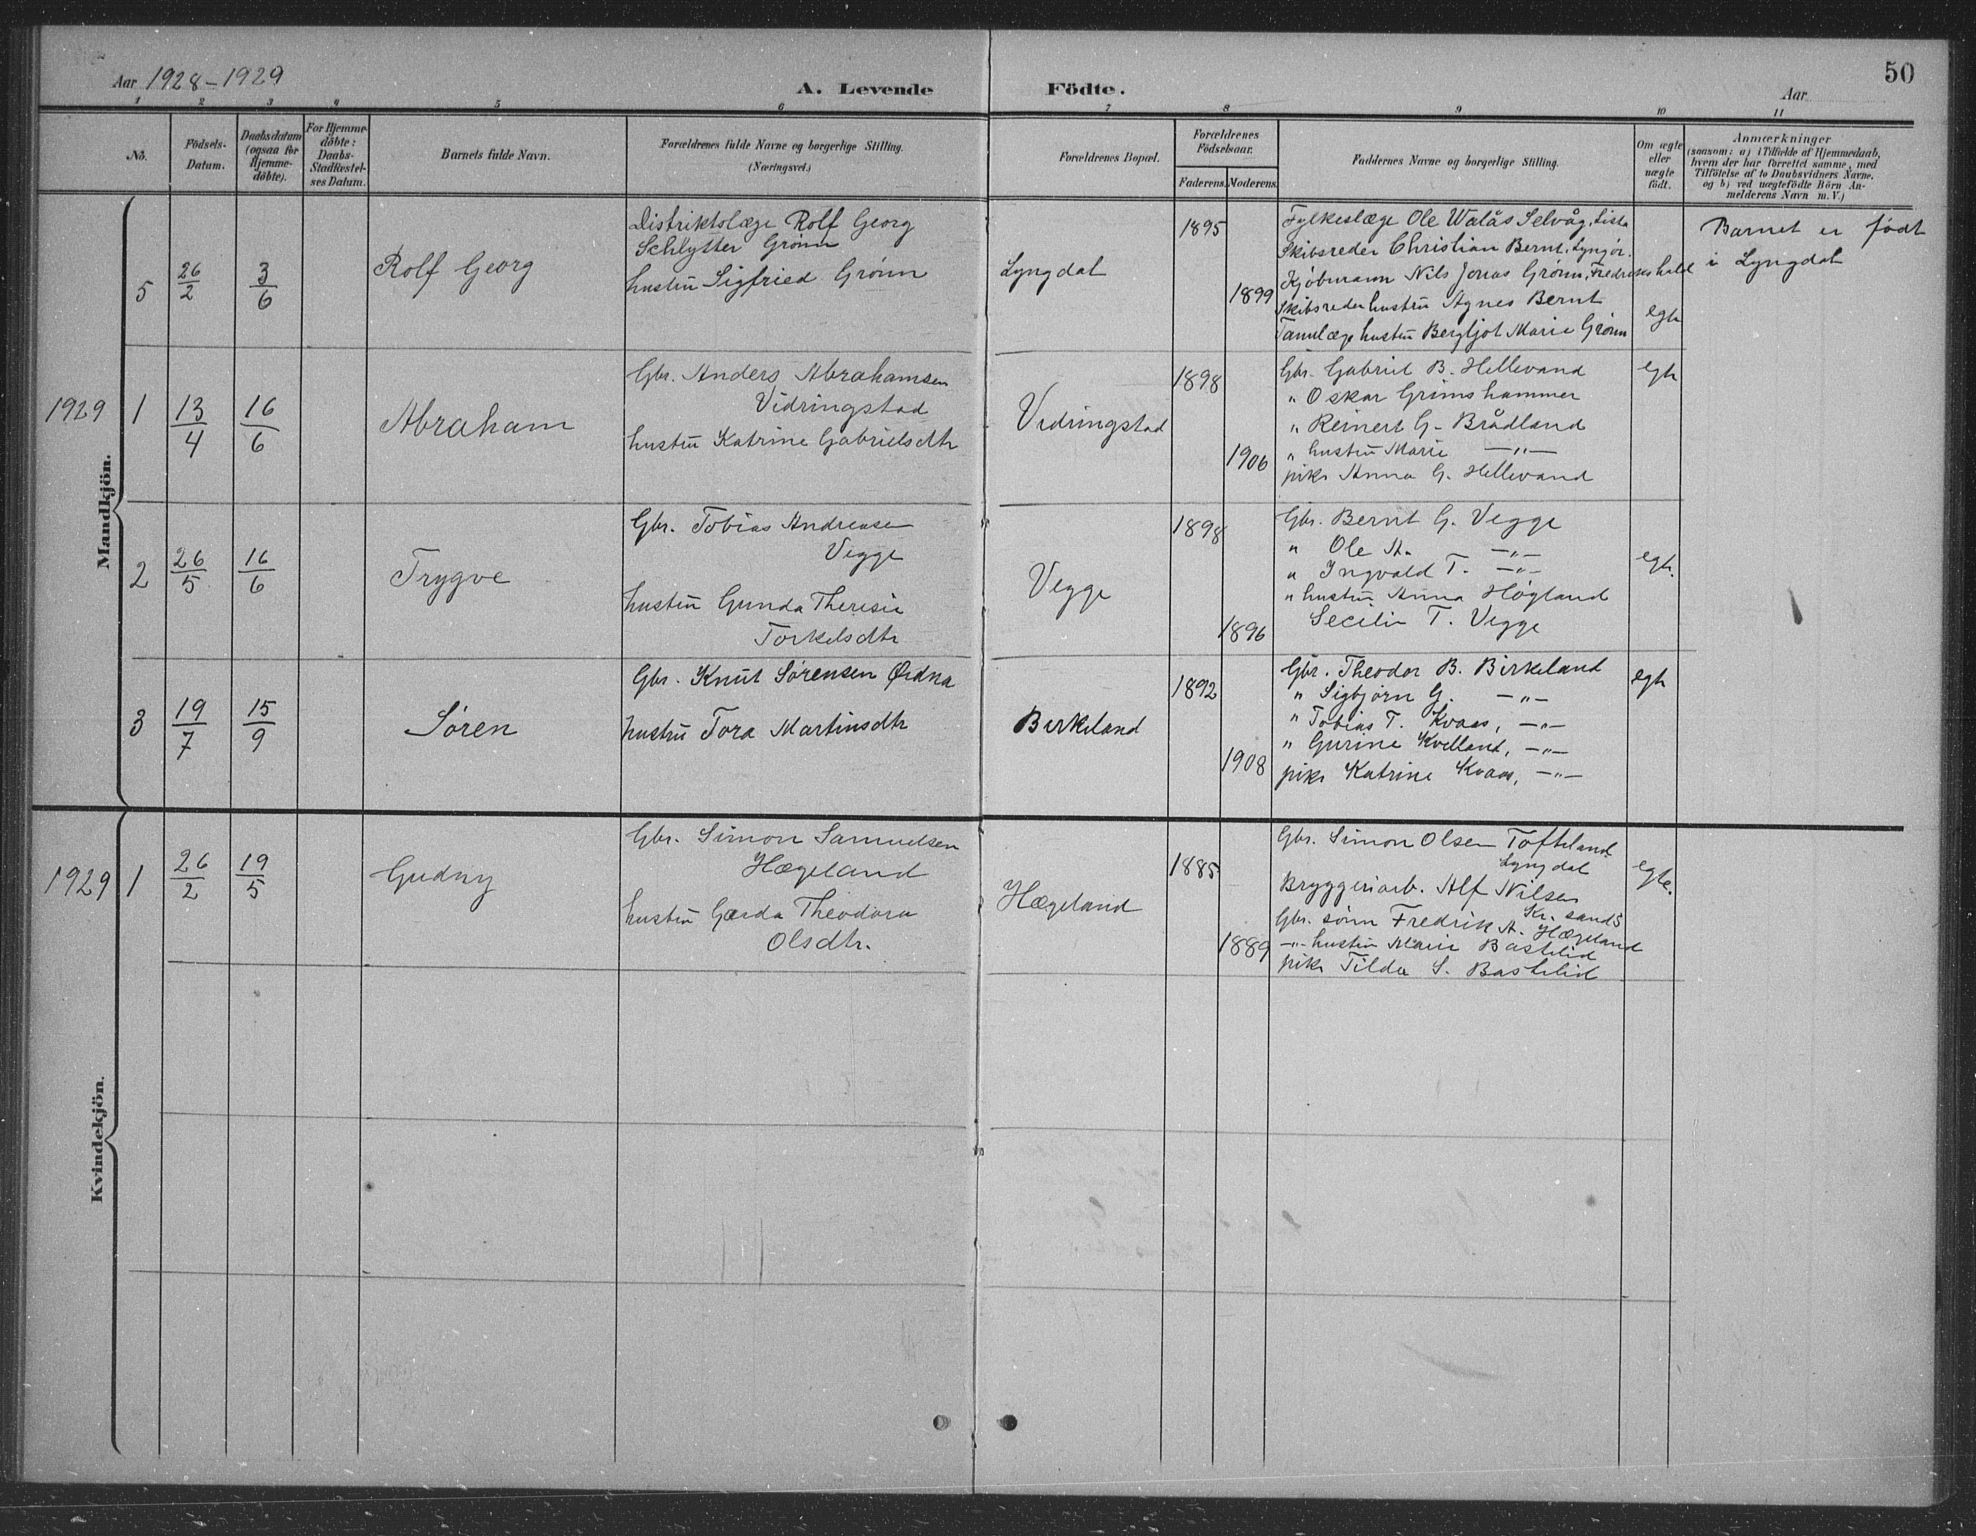 50
Aar 1928-1929
A. Levende Födte.
Aar
1 2 3 4 5 6 7 8 9 10 11
No.
Födsels-Datum.
Daabsdatum (ogsaa for Hjemme-döbte).
For Hjemme-döbte: Daabs-Stadfæstel-ses Datum.
Barnets fulde Navn.
Forældrenes fulde Navne og borgerlige Stilling.
(Næringsvei.)
Forældrenes Bopæl.
Forældrenes Födselsaar.
Faderens. Moderens.
Faddernes Navne og borgerlige Stilling.
Om ægte eller uægte födt.
Anmærkninger
(saasom: a) i Tilfælde af Hjemmedaab,
hvem der har forrettet samme, med
Tilföielse af to Daabsvidners Navne.
og b) ved uægtefödte Börn An-
melderens Navn m. V.)
Mandkjön.
5 26/2 3/6 Rolf Georg
Distriktslæge Rolf Georg
Schlytter Grönn
hustru Sigfried Grönn
Lyngdal
1895
1899
Fylkeslæge Ole Walås Selvåg, Lista
Skibsreder Christian Bernt, Lyngör.
Kjøbmann Nils Jonas Grönn, Fredrikshald
Skibsreder hustru Agnes Bernt
Tannlæge hustru Bergljot Marie Grönn
egte
Barnet er født
i Lyngdal
1929 1 13/4 16/6 Abraham
Gbr. Anders Abrahamsen
Vidringstad
hustru Katrine Gabrielsdtr
Vidringstad
1898
1906
Gbr. Gabriel B. Hellevand
" Oskar Grimshammer
" Reinert G. Brådland
" hustru Marie -"-
pike Anna G. Hellevand
egte
2 26/5 16/6 Trygve
Gbr. Tobias Andreasen
Vegge
hustru Gunda Theresie
Torkelsdtr
Vegge
1898
1896
Gbr. Bernt G. Vegge
" Ole A. -"-
" Ingvald T. -"-
" hustru Anna Høgland
Secilie T. Vegge
egte.
3 19/7 15/9 Søren
Gbr. Knut Sørensen Ørdna
hustru Tora Martinsdtr
Birkeland
1892
1908
Gbr. Theodor B. Birkeland
" Sigbjørn G. -"-
" Tobias T. Kvaas, -"-
" Gurine Kvelland, -"-
pike Katrine Kvaas, -"-
egte
Kvindekjön.
1929 1 26/2 19/5 Gudny
Gbr. Simon Samuelsen
Hægeland
hustru Gerda Theodora
Olsdtr.
Hægeland
1885
1889
Gbr. Simon Olsen Tofteland
Lyngdal
Bryggeriarb. Alf Nilsen
Kr. sands
Gbr. sønn Fredrik A. Hægeland
-"- hustru Marie Bastelid
pike Tilda S. Bastelid
egte.